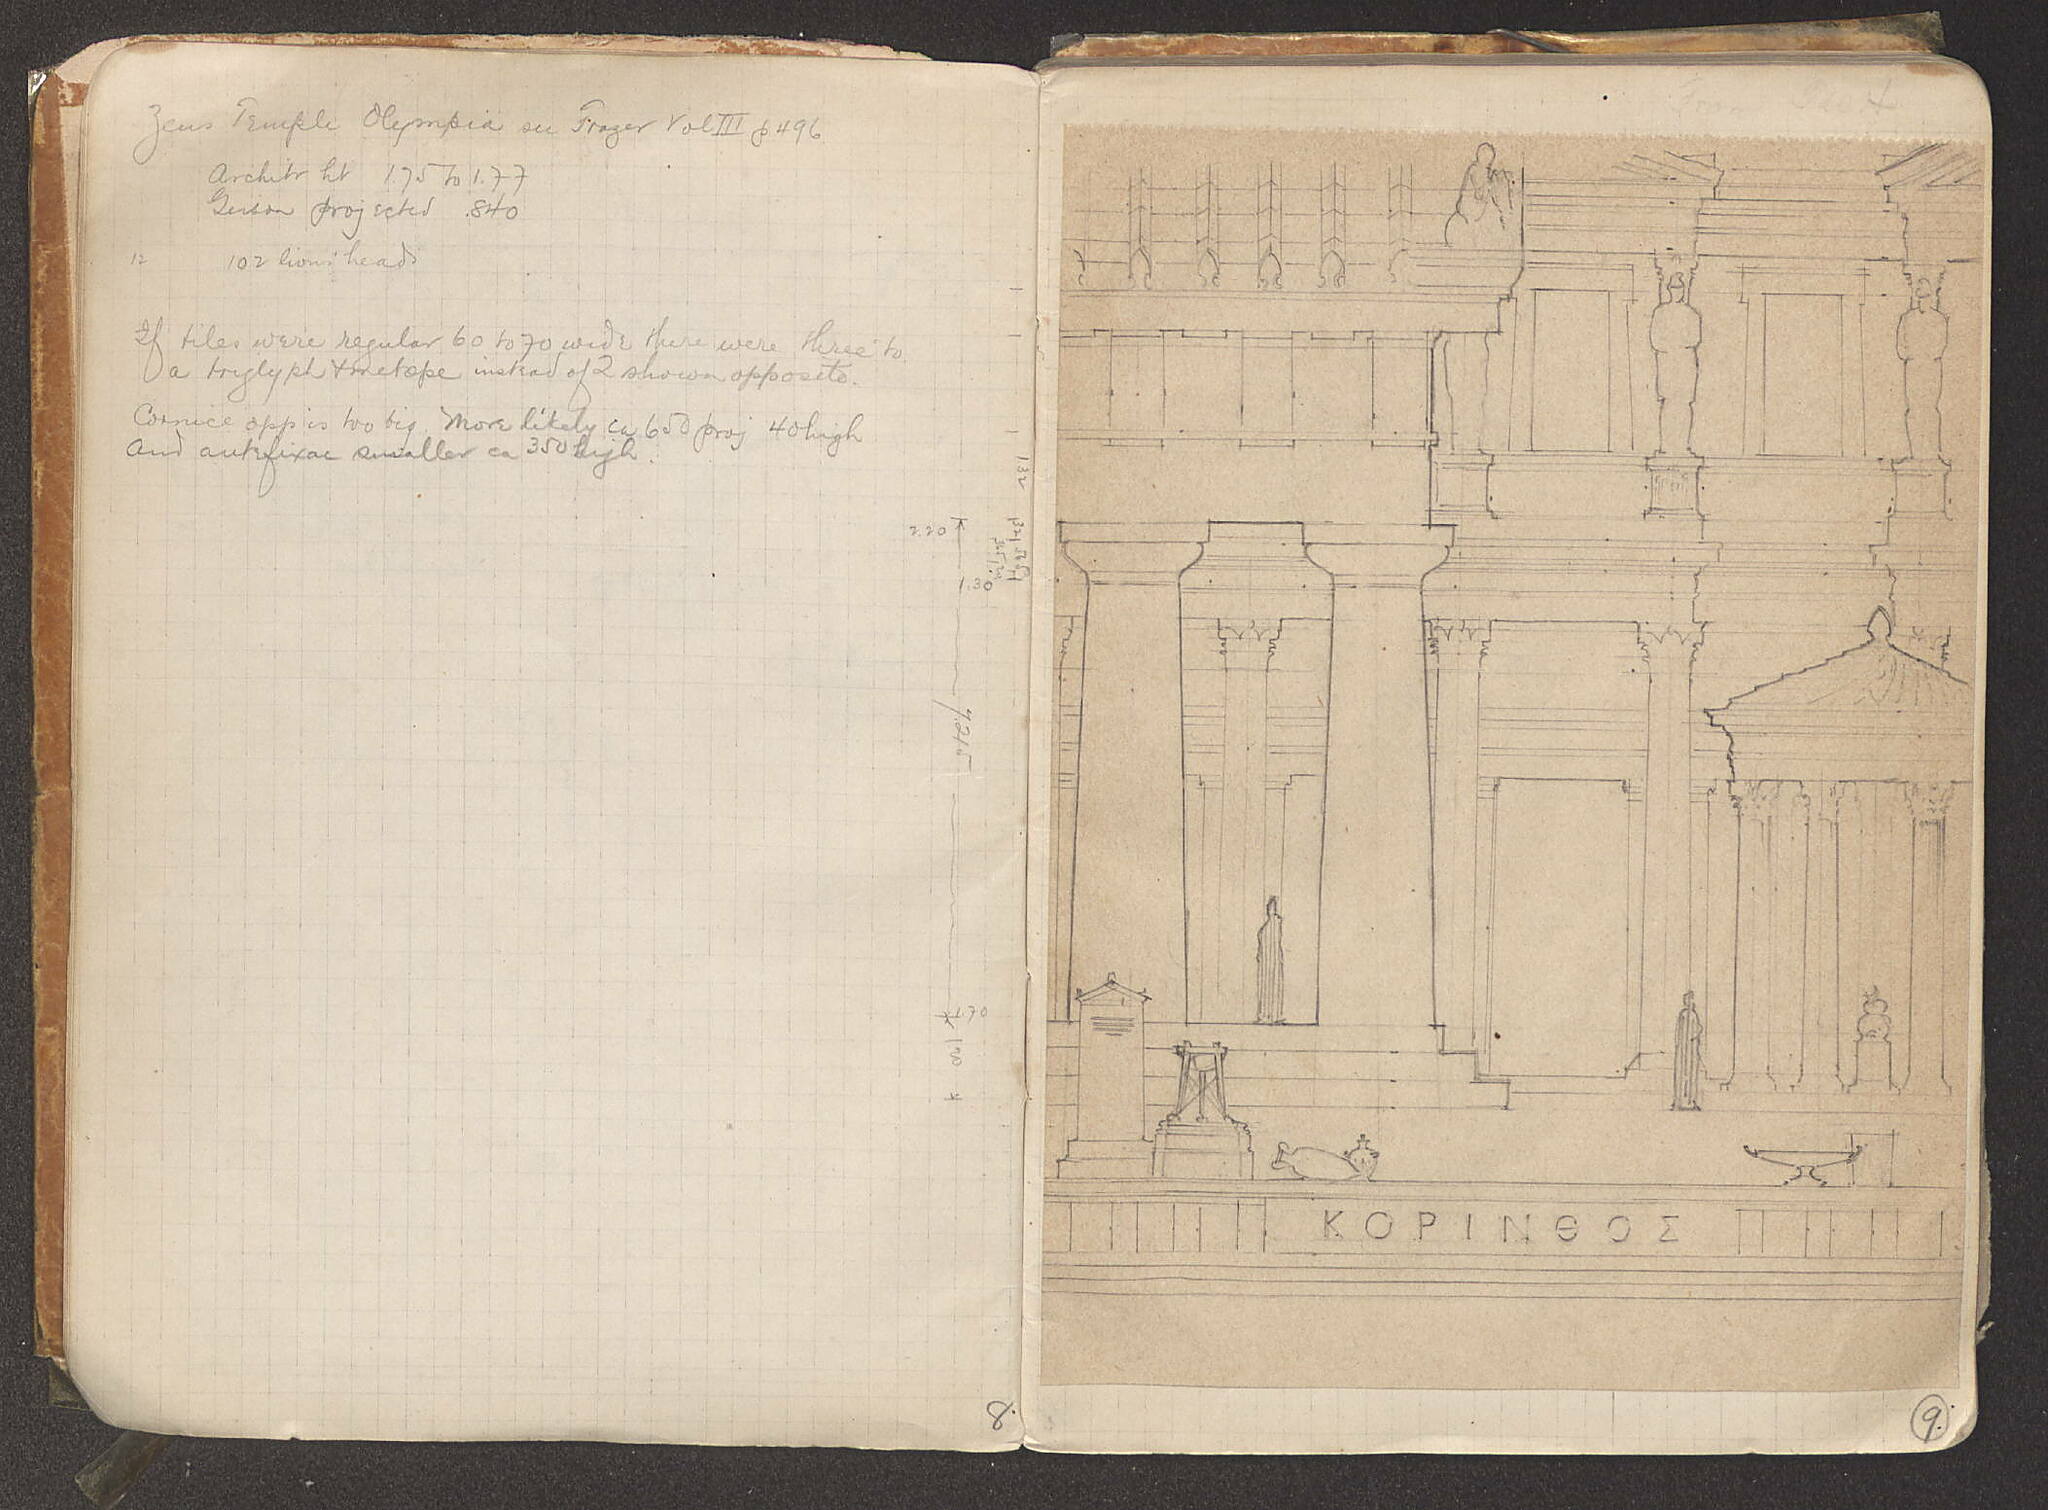 Zeus Temple Olympia see Frazer Vol III p 496
Architr ht 1.75 to 1.77
Geison projected .840
12 102 lions' heads
If tiles were regular 60 to 70 wide there were three to
a triglyph & metope instead of 2 shown opposite.
Cornice opp is too big. More likely ca 650 proj 40 high
and antefixae smaller ca 350 high.
132
2.20
1.30
7.215
1.70
8.
ΚΟΡΙΝΘΟΣ
9.